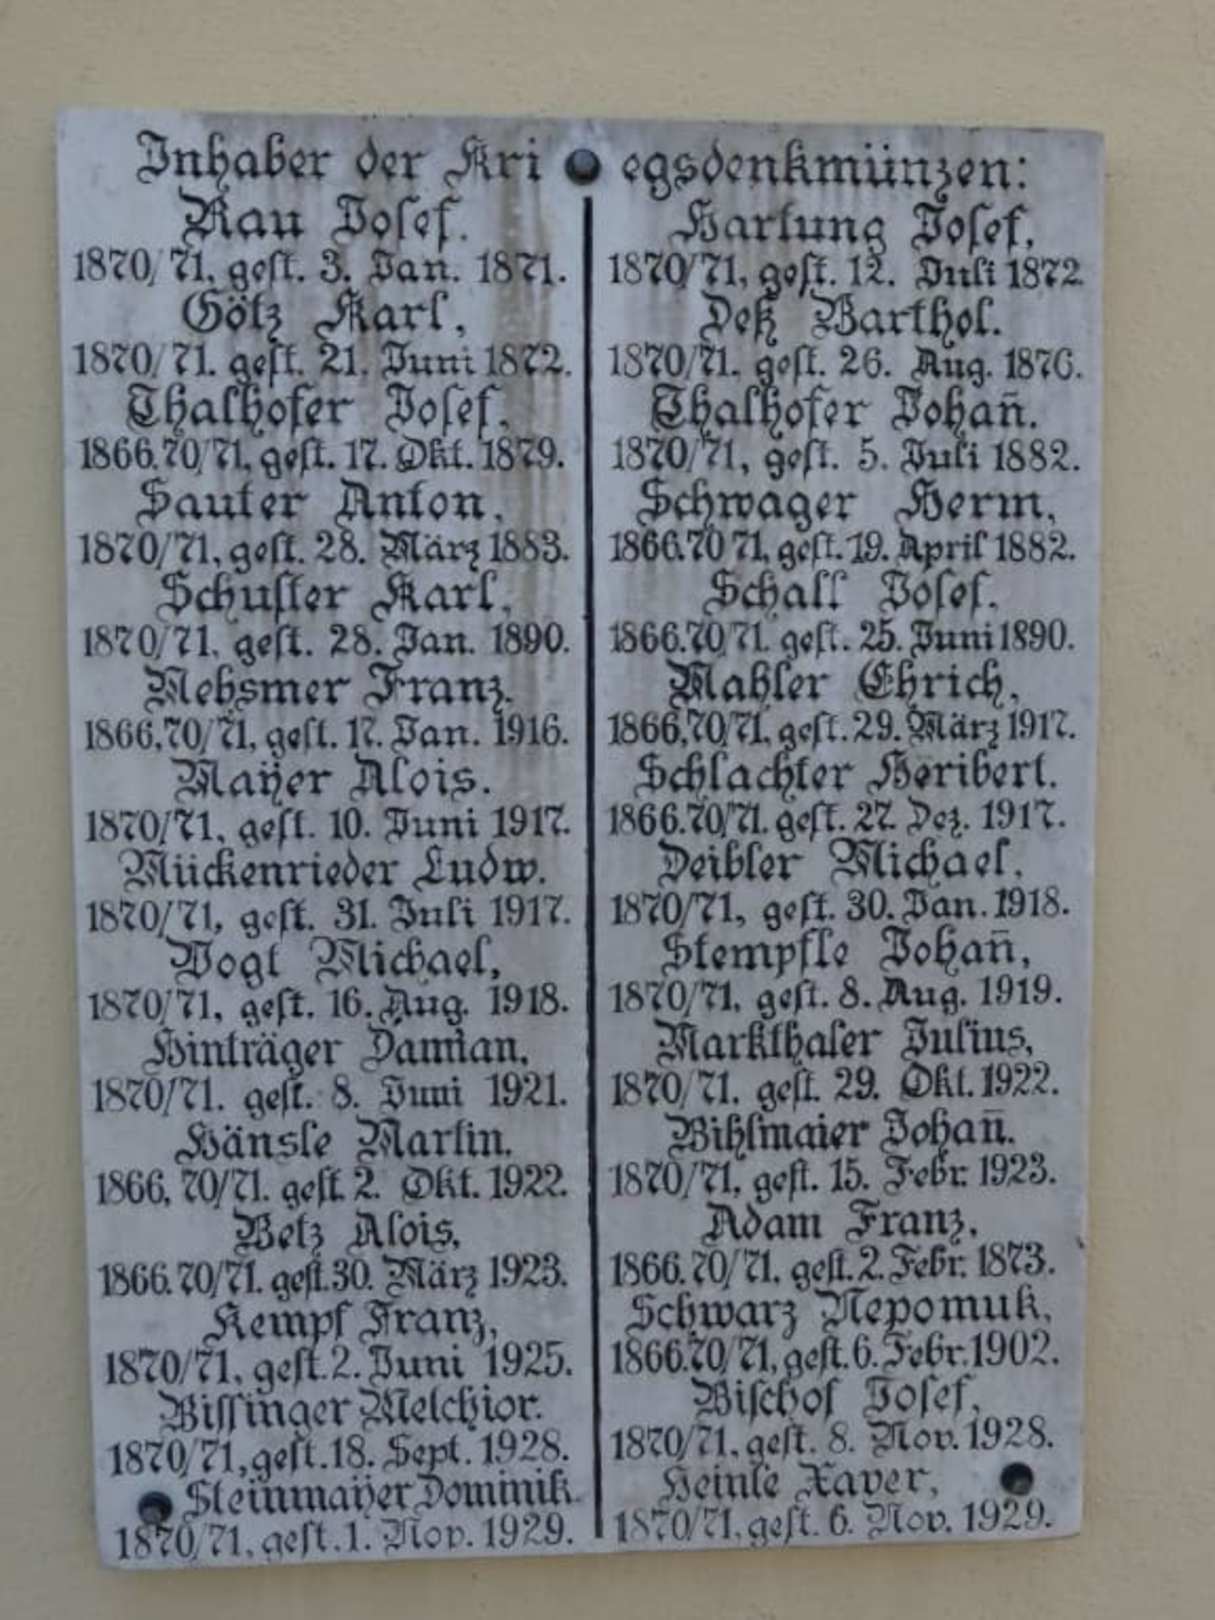 Inhaber der Kriegsdenkmünzen:
Rau Josef.
1870/71, gest. 3. Jan. 1871.
Götz Karl,
1870/71. gest. 21. Juni 1872.
Thalhofer Josef,
1866.70/71, gest. 17. Okt. 1879.
Sauter Anton,
1870/71, gest. 28. März 1883.
Schuster Karl,
1870/71, gest. 28. Jan. 1890.
Mebsmer Franz.
1866,70/71, gest. 17. Jan. 1916.
Maÿer Alois.
1870/71, gest. 10. Juni 1917.
Mückenrieder Ludw.
1870/71, gest. 31. Juli 1917.
Vogt Michael,
1870/71, gest. 16. Aug. 1918.
Hinträger Damian,
1870/71. gest. 8. Juni 1921.
Hänsle Martin.
1866, 70/71. gest. 2. Okt. 1922.
Betz Alois,
1866.70/71. gest. 30. März 1923.
Kempf Franz,
1870/71, gest. 2. Juni 1925.
Bissinger Melchior.
1870/71, gest. 18. Sept. 1928.
Steinmaÿer Dominik
1870/71, gest. 1. Nov. 1929.
Hartung Josef,
1870/71, gest. 12. Juli 1872
Barthol.
1870/71. gest. 26. Aug. 1876.
Thalhofer Johan̄.
1870/71, gest. 5. Juli 1882.
Schwager Herm,
1866.70 71, gest. 19. April 1882.
Schall Josef.
1866.70/71. gest. 25. Juni 1890.
Mahler Ehrich,
1866,70/71, gest. 29. März 1917.
Schlachter Heribert.
1866.70/71. gest. 27. Dez. 1917.
Deibler Michael,
1870/71, gest. 30. Jan. 1918.
Stempfle Johan̄,
1870/71, gest. 8. Aug. 1919.
Markthaler Julius,
1870/71, gest. 29. Okt. 1922.
Bihlmaier Johan̄.
1870/71, gest. 15. Febr. 1923.
Adam Franz,
1866.70/71, gest. 2. Febr. 1873.
Schwarz Nepomuk,
1866.70/71, gest. 6. Febr. 1902.
Bischof Josef,
1870/71, gest. 8. Nov. 1928.
Heinle Xaver,
1870/71, gest. 6. Nov. 1929.